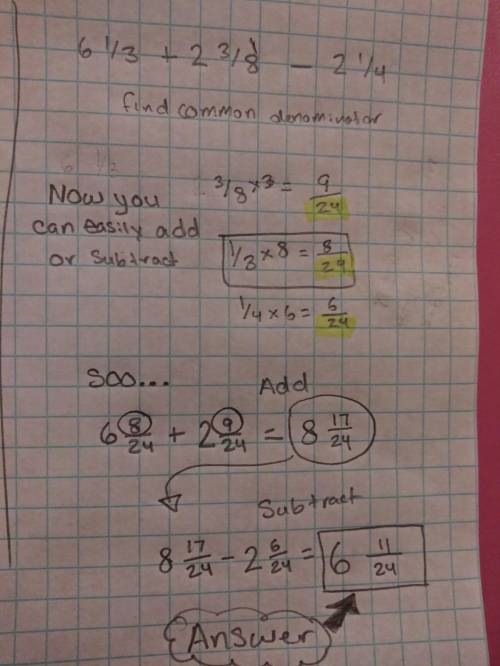 6 1/3 + 2 3/8 - 2 1/4
find common denominator
Now you
can easily add
or subtract
3/8 x 3 = 9/24
1/3 x 8 = 8/24
1/4 x 6 = 6/24
Soo...
Add
6 8/24 + 2 9/24 = 8 17/24
Subtract
8 17/24 - 2 6/24 = 6 11/24
Answer